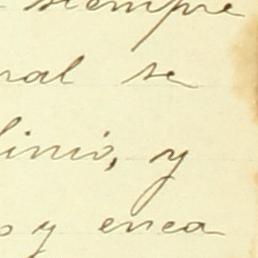 siempre
ral se
linio, y
o y enca